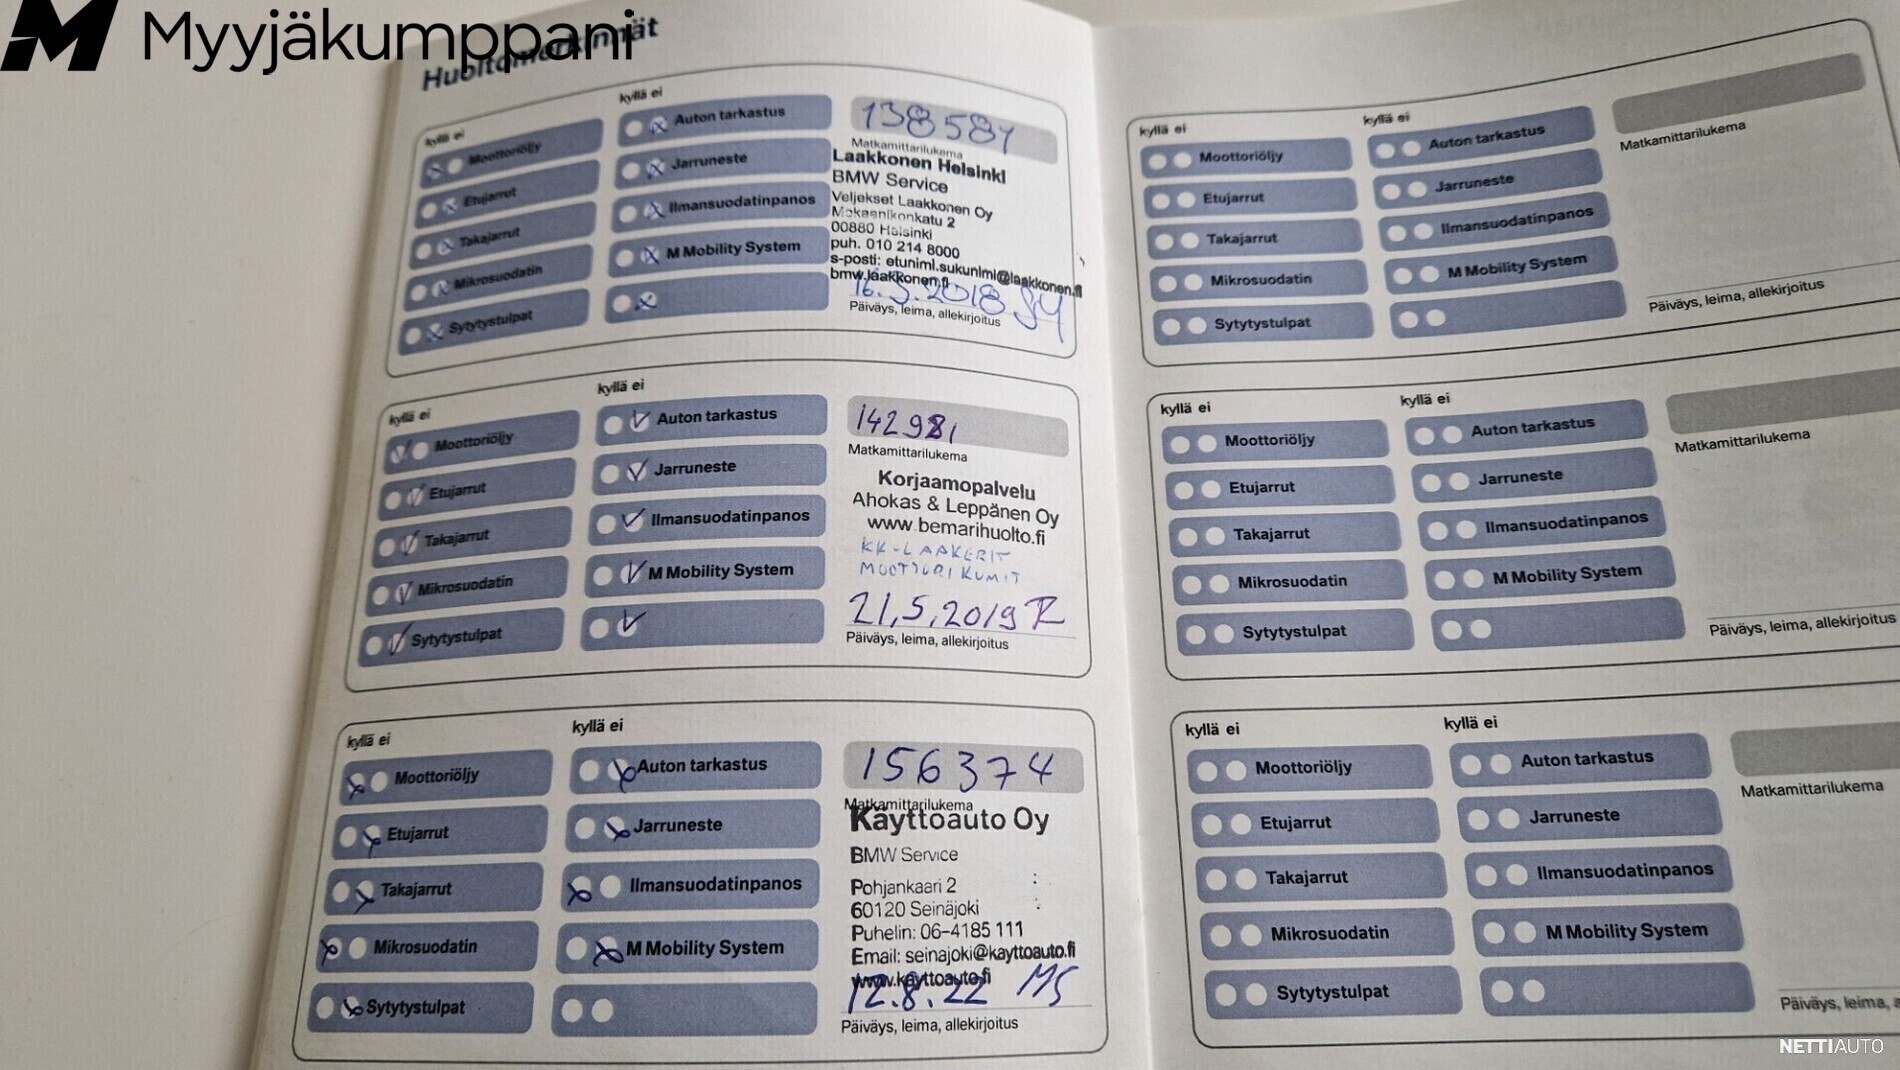 Myyjäkumppani
Huoltomerkinnät
kyllä ei
kyllä ei
Moottoriöljy
Etujarrut
Takajarrut
Mikrosuodatin
Sytytystulpat
Auton tarkastus
Jarruneste
Ilmansuodatinpanos
M Mobility System
138581
Matkamittarilukema
Laakkonen Helsinki
BMW Service
Veljekset Laakkonen Oy
Mekaanikonkatu 2
00880 Helsinki
puh. 010 214 8000
s-posti: etunimi.sukunimi@laakkonen.fi
bmw.laakkonen.fi
2018
Päiväys, leima, allekirjoitus
kyllä ei
kyllä ei
Moottoriöljy
Etujarrut
Takajarrut
Mikrosuodatin
Sytytystulpat
Auton tarkastus
Jarruneste
Ilmansuodatinpanos
M Mobility System
142981
Matkamittarilukema
Korjaamopalvelu
Ahokas & Leppänen Oy
www.bemarihuolto.fi
KK-LAAKERIT
MOOTTORIKUMIT
21,5,2019
Päiväys, leima, allekirjoitus
kyllä ei
kyllä ei
Moottoriöljy
Etujarrut
Takajarrut
Mikrosuodatin
Sytytystulpat
Auton tarkastus
Jarruneste
Ilmansuodatinpanos
M Mobility System
156374
Matkamittarilukema
Käyttöauto Oy
BMW Service
Pohjankaari 2
60120 Seinäjoki
Puhelin: 06-4185 111
Email: seinajoki@kayttoauto.fi
www.kayttoauto.fi
12.8.22 MS
Päiväys, leima, allekirjoitus
kyllä ei
kyllä ei
Moottoriöljy
Etujarrut
Takajarrut
Mikrosuodatin
Sytytystulpat
Auton tarkastus
Jarruneste
Ilmansuodatinpanos
M Mobility System
Matkamittarilukema
Päiväys, leima, allekirjoitus
kyllä ei
kyllä ei
Moottoriöljy
Etujarrut
Takajarrut
Mikrosuodatin
Sytytystulpat
Auton tarkastus
Jarruneste
Ilmansuodatinpanos
M Mobility System
Matkamittarilukema
Päiväys, leima, allekirjoitus
kyllä ei
kyllä ei
Moottoriöljy
Etujarrut
Takajarrut
Mikrosuodatin
Sytytystulpat
Auton tarkastus
Jarruneste
Ilmansuodatinpanos
M Mobility System
Matkamittarilukema
Päiväys, leima, a
NETTIAUTO